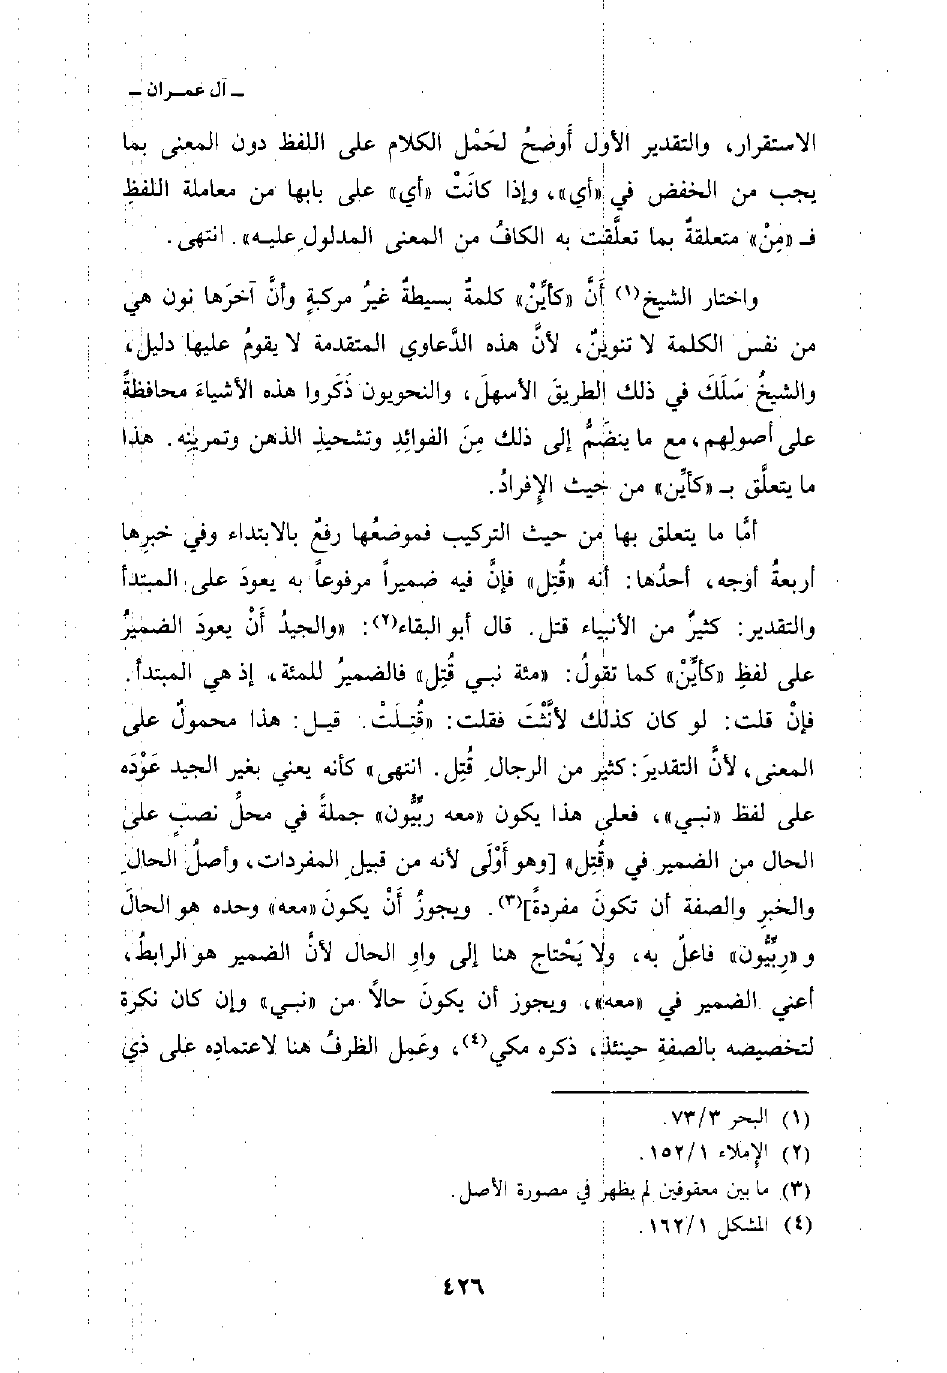 ـ آل عمـران ـ
الاستقرار، والتقدير الأول أَوضحُ لحَمْلِ الكلام على اللفظ دون المعنى بما
يجب من الخفض في «أي»، وإذا كانَتْ «أي» على بابها من معاملة اللفظِ
فـ «مِنْ» متعلقةٌ بما تعلَّقت به الكافُ من المعنى المدلولِ عليه». انتهى.
واختار الشيخ(١) أنَّ «كأيِّنْ» كلمةٌ بسيطةٌ غيرُ مركبةٍ وأنَّ آخرَها نون هي
من نفس الكلمة لا تنوينٌ، لأنَّ هذه الدَّعاوى المتقدمة لا يقومُ عليها دليل،
والشيخُ سَلَكَ في ذلك الطريقَ الأسهلَ، والنحويون ذَكَروا هذه الأشياءَ محافظةً
على أصولِهم، مع ما ينضَمُّ إلى ذلك مِنَ الفوائِدِ وتشحيذِ الذهن وتمرينِه. هذا
ما يتعلَّق بـ «كأيِّن» من حيث الإِفرادُ.
أمَّا ما يتعلق بها من حيث التركيب فموضعُها رفعٌ بالابتداء وفي خبرِها
أربعةُ أوجه، أحدُها: أنه «قُتِل» فإنَّ فيه ضميراً مرفوعاً به يعودَ على المبتدأ
والتقدير: كثيرٌ من الأنبياء قتل. قال أبو البقاء(٢): «والجيدُ أَنْ يعودَ الضميرُ
على لفظِ «كأيِّنْ» كما تقولُ: «مئة نبي قُتِل» فالضميرُ للمئة، إذ هي المبتدأ.
فإنْ قلت: لو كان كذلك لأنَّثْتَ فقلت: «قُتِلَتْ. قيل: هذا محمولٌ على
المعنى، لأنَّ التقديرَ: كثير من الرجالِ قُتِل. انتهى» كأنه يعني بغير الجيد عَوْدَه
على لفظ «نبي»، فعلى هذا يكون «معه رِبِّيُّون» جملةً في محلِّ نصبٍ على
الحال من الضمير في «قُتِل» [وهو أَوْلَى لأنه من قبيلِ المفردات، وأصلُ الحالِ
والخبرِ والصفة أن تكونَ مفردةً](٣). ويجوزُ أَنْ يكونَ «معه» وحده هو الحالَ
و «رِبِّيُّون» فاعلٌ به، ولا يَحْتاج هنا إلى واوِ الحال لأنَّ الضمير هو الرابطُ،
أعني الضمير في «معه»، ويجوز أن يكونَ حالاً من «نبي» وإن كان نكرة
لتخصيصه بالصفةِ حينئذ، ذكره مكي(٤)، وعَمِل الظرفُ هنا لاعتمادِه على ذي
(١) البحر ٧٣/٣.
(٢) الإملاء ١٥٢/١.
(٣) ما بين معقوفين لم يظهر في مصورة الأصل.
(٤) المشكل ١٦٢/١.
٤٢٦